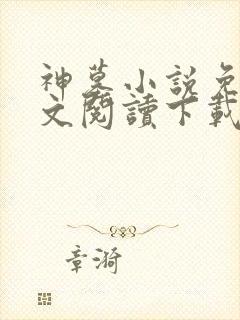 神墓小说免
文閱讀下載
章漪